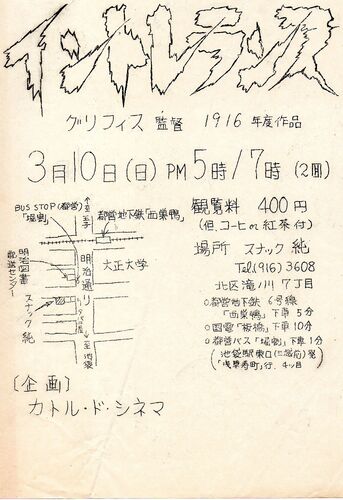 イントレランス
グリフィス 監督 1916 年度作品
3月10日(日) PM5時/7時(2回)
観覧料 400円
(但、コーヒー or 紅茶付)
場所 スナック 純
Tel.(916) 3608
北区滝川 7丁目
○都営地下鉄 6号線
「西巣鴨」下車 5分
○国電「板橋」下車10分
○都営バス「堀割」下車1分
「浅草寿町」行、4ッ目
BUS STOP(都営)
「堀割」
都営地下鉄「西巣鴨」
至王子
明治通り
大正大学
明治図書
配送センター
スナック 純
至池袋
[企画]
カトル・ド・シネマ